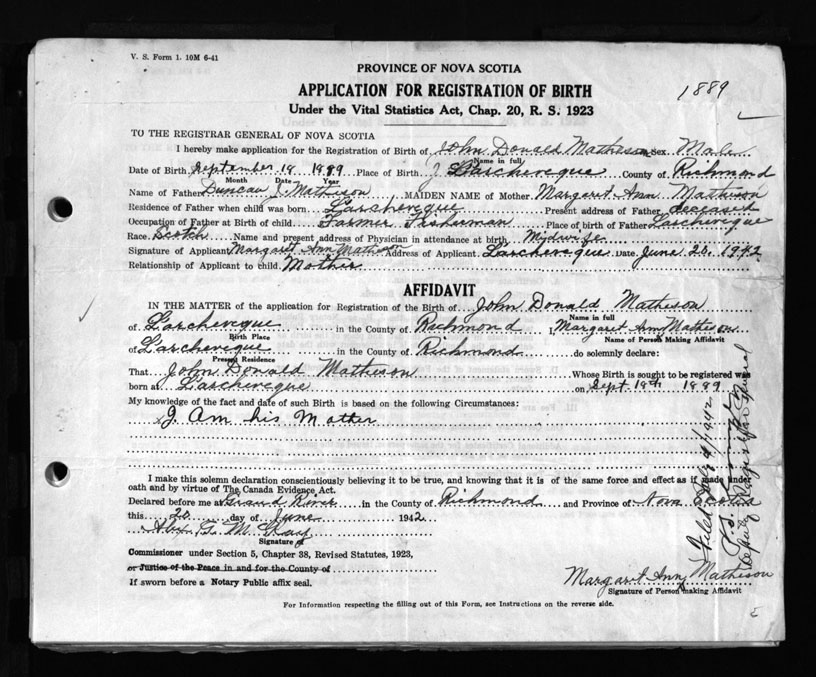 V. S. Form 1. 10M 6-41
PROVINCE OF NOVA SCOTIA
APPLICATION FOR REGISTRATION OF BIRTH
1889
Under the Vital Statistics Act, Chap. 20, R. S. 1923
TO THE REGISTRAR GENERAL OF NOVA SCOTIA
I hereby make application for the Registration of Birth of John Donald Matheson Sex Male
Name in full
Date of Birth September 18 1889 Place of Birth County of Richmond
Month Date Year
Name of Father Duncan J. Matheson MAIDEN NAME of Mother Margaret Ann Matheson
Residence of Father when child was born Present address of Father deceased
Occupation of Father at Birth of child Farmer Fisherman Place of birth of Father
Race Scotch Name and present address of Physician in attendance at birth Midwife
Signature of Applicant Margaret Ann Matheson Address of Applicant Date June 20. 1942
Relationship of Applicant to child Mother
AFFIDAVIT
IN THE MATTER of the application for Registration of the Birth of John Donald Matheson
Name in full
of in the County of Richmond I, Margaret Ann Matheson
Birth Place Name of Person Making Affidavit
of in the County of Richmond do solemnly declare:
Present Residence
That John Donald Matheson Whose Birth is sought to be registered was
born at on Sept 18th 1889
My knowledge of the fact and date of such Birth is based on the following Circumstances:
I Am his Mother
I make this solemn declaration conscientiously believing it to be true, and knowing that it is of the same force and effect as if made under
oath and by virtue of The Canada Evidence Act.
Declared before me at Grand River in the County of Richmond and Province of Nova Scotia
this 20 day of June 1942
Alex
Signature of
Commissioner under Section 5, Chapter 38, Revised Statutes, 1923,
or Justice of the Peace in and for the County of
If sworn before a Notary Public affix seal.
Margaret Ann Matheson
Signature of Person making Affidavit
For Information respecting the filling out of this Form, see Instructions on the reverse side.
Filed 1942
Deputy Registrar General